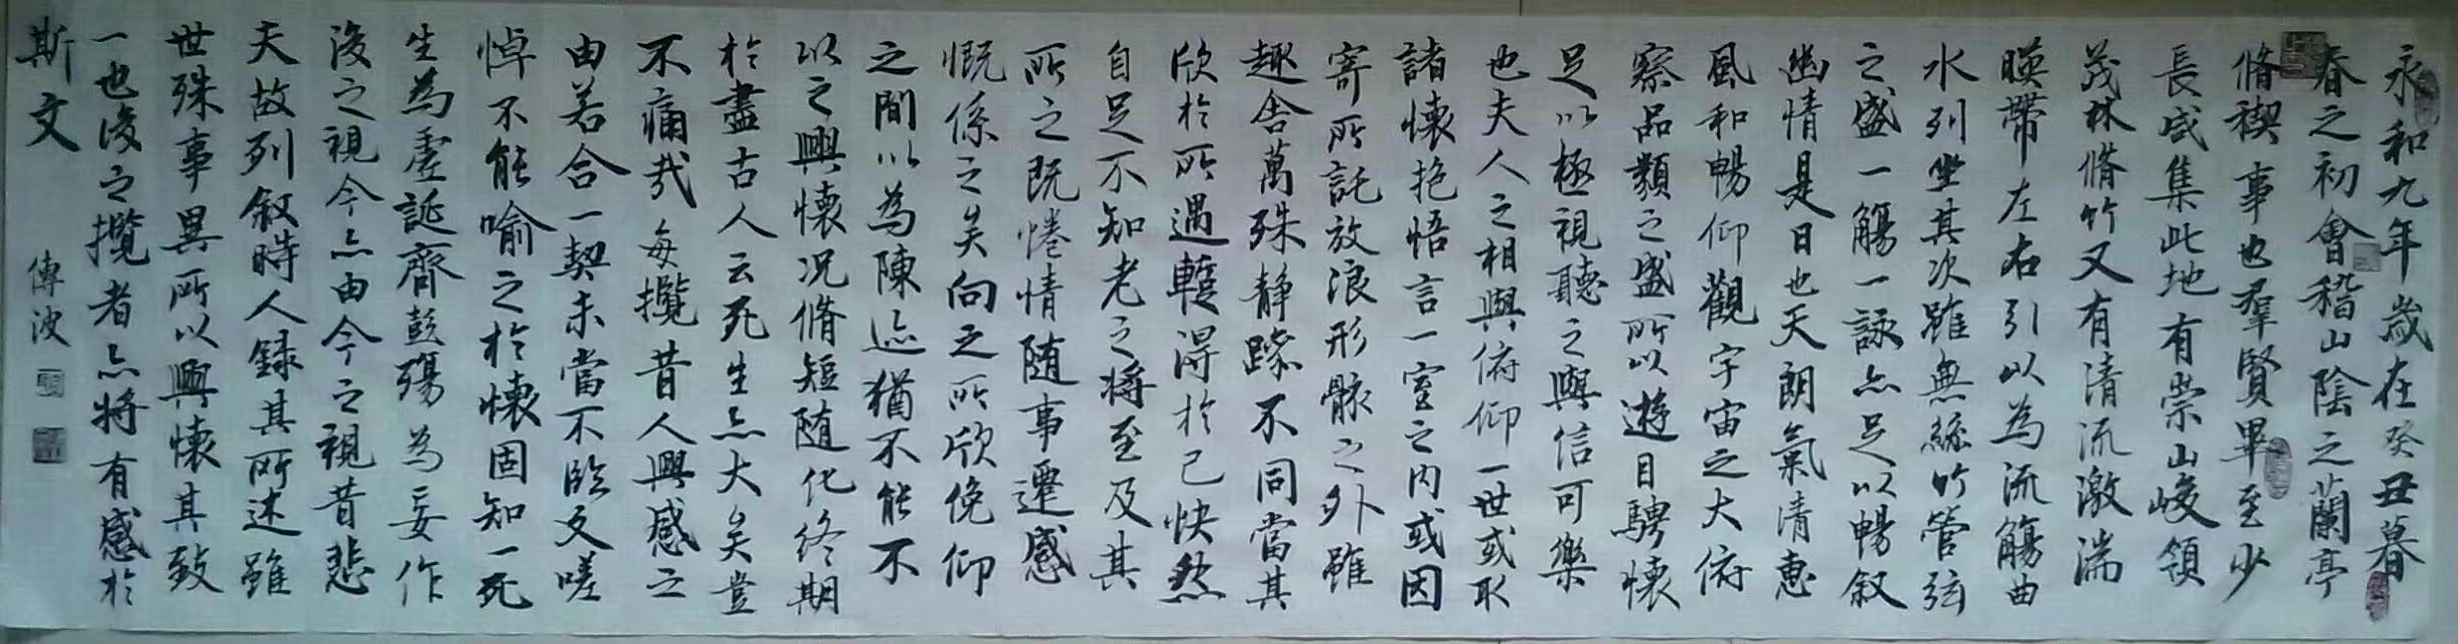 永和九年歲在癸丑暮
春之初會稽山陰之蘭亭
脩稧事也羣賢畢至少
長咸集此地有崇山峻領
茂林脩竹又有清流激湍
暎帶左右引以為流觴曲
水列坐其次雖無絲竹管弦
之盛一觴一詠亦足以暢叙
幽情是日也天朗氣清惠
風和暢仰觀宇宙之大俯
察品類之盛所以遊目騁懷
足以極視聽之興信可樂
也夫人之相與俯仰一世或取
諸懷抱悟言一室之內或因
寄所託放浪形骸之外雖
趣舍萬殊静躁不同當其
欣於所遇蹔得於己快然
自足不知老之將至及其
所之既惓情随事遷感
慨係之矣向之所欣俛仰
之間以為陳迹猶不能不
以之興懷况脩短随化終期
於盡古人云死生亦大矣豈
不痛哉每攬昔人興感之
由若合一契未嘗不臨文嗟
悼不能喻之於懷固知一死
生為虛誕齊彭殤為妄作
後之視今亦由今之視昔悲
夫故列叙時人録其所述雖
世殊事異所以興懷其致
一也後之攬者亦將有感於
斯文
傅波